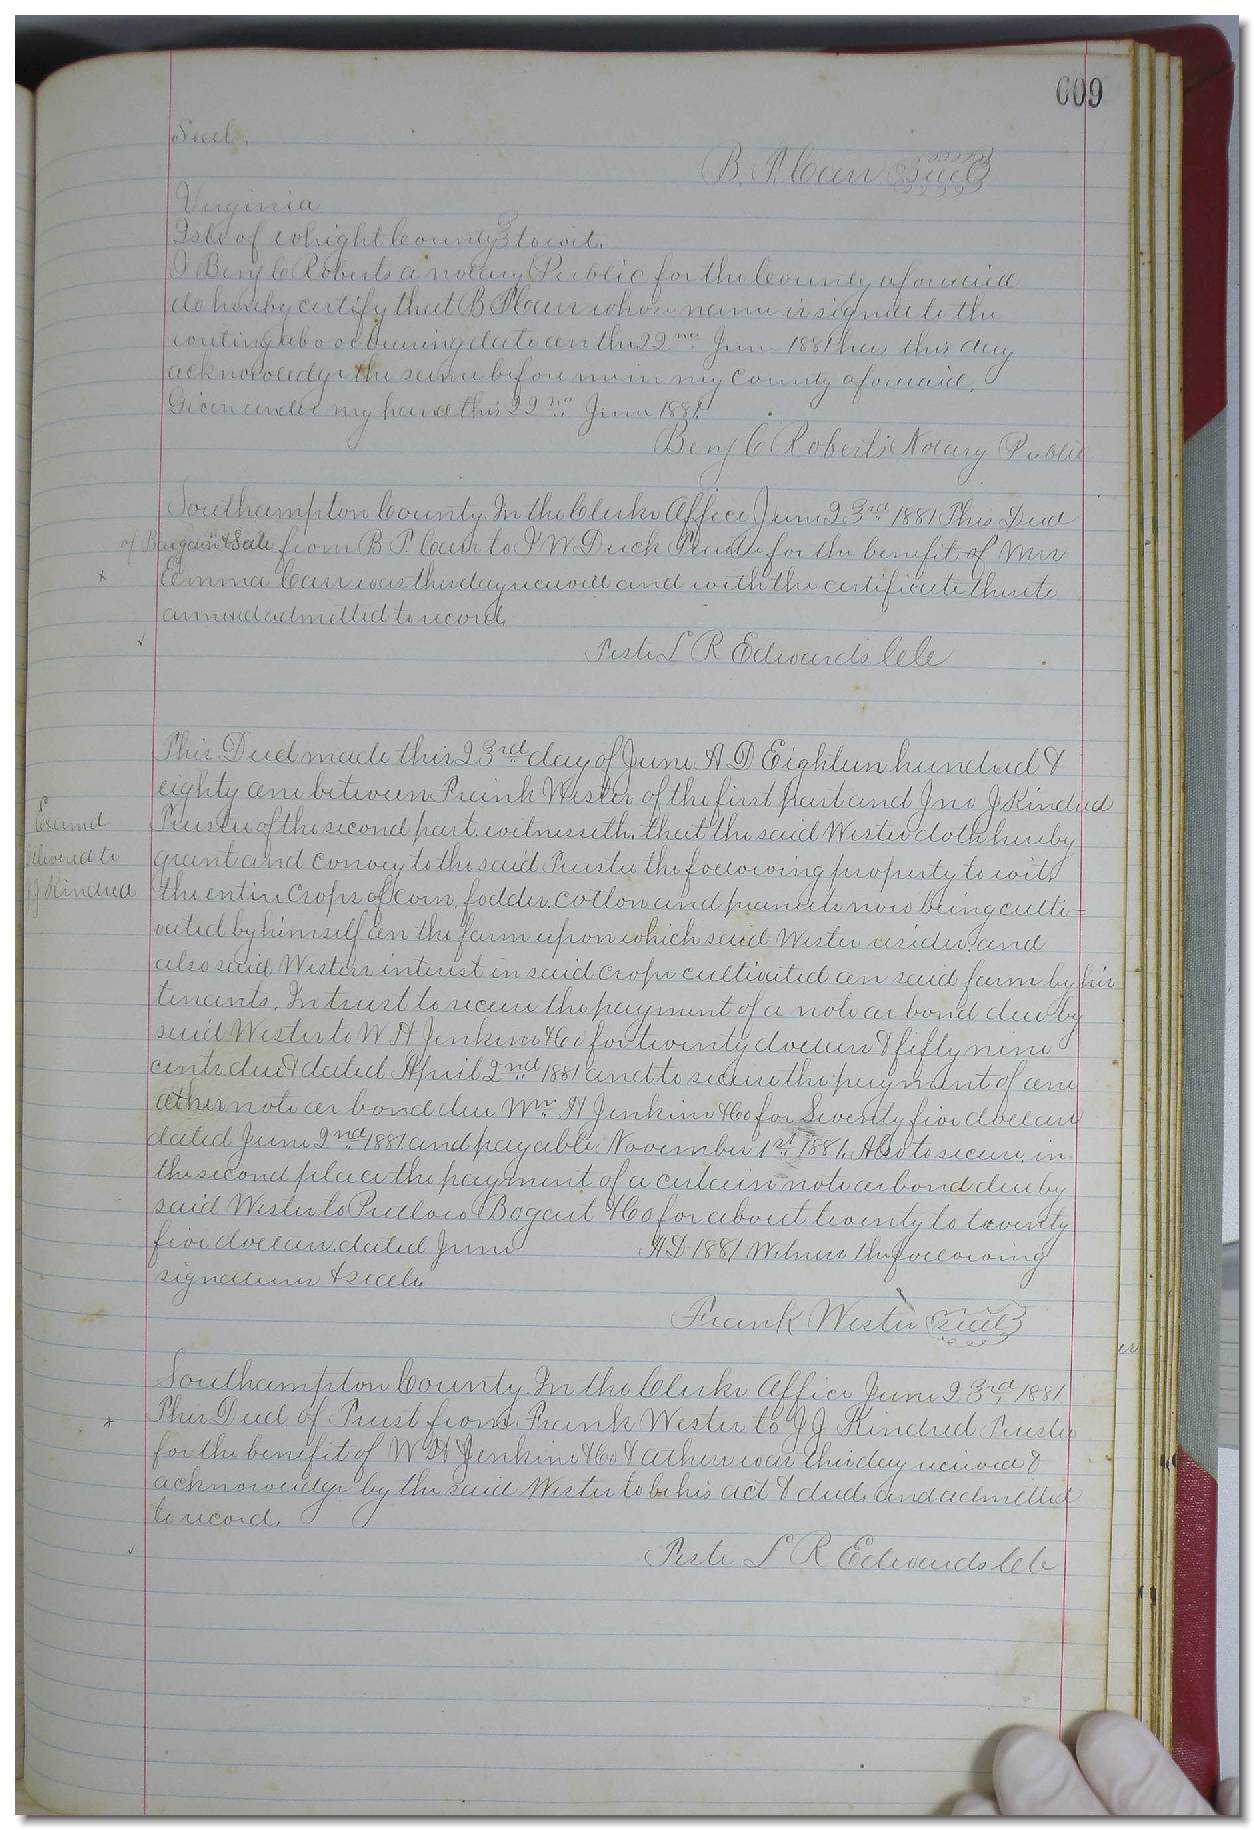 609
Seal.
B. P. Carr Seal
Virginia
Isle of Whight County to wit.
I Benj C Roberts a notary Public for the County aforesaid
do hereby certify that B P Carr whose name is signed to the
writing abo ve bearing date on the 22nd June 1881 has this day
acknowledge the same before me in my County aforesaid.
Given under my hand this 22nd June 1881.
Benj C Roberts Notary Public
Southampton County In the Clerks Office June 23rd 1881 This Deed
of Bargain & Sale from B P Carr to J W Duck Trustee for the benefit of Mrs
Emma Carr was this day received and with the certificate thereto
annexed admitted to record.
Teste L R Edwards clk
This Deed made this 23rd day of June A D Eighteen hundred &
eighty one between Frank Wester of the first part and Jno J Kindred
Examd
Trustee of the second part. witnesseth. that the said Wester doth hereby
delivered to
grant and convey to the said Trustee the following property to wit.
J J Kindred
the entire crops of corn, fodder. cotton and peanuts now being culti=
vated by himself on the farm upon which said Wester resides. and
also said Westers interest in said crops cultivated on said farm by his
tenants. In trust to secure the payment of a note or bond due by
said Wester to W H Jenkins & Co for twenty dollars & fifty nine
cents due & dated April 2nd 1881 and to secure the payment of one
other note or bond due Wm H Jenkins & Co for Seventy five dollars
dated June 2nd 1881 and payable November 1st 1881. Also to secure in
the second place the payment of a certain note or bond due by
said Wester to Pretlow Bogart & Co for about twenty to twenty
five dollars dated June A D 1881 Witness the following
signatures & seals
Frank Wester Seal
Southampton County In the Clerks Office June 23rd 1881
This Deed of Trust from Frank Wester to J J Kindred Trustee
for the benefit of W H Jenkins & Co & others was this day received &
acknowledge by the said Wester to be his act & deed and admitted
to record.
Teste L R Edwards clk